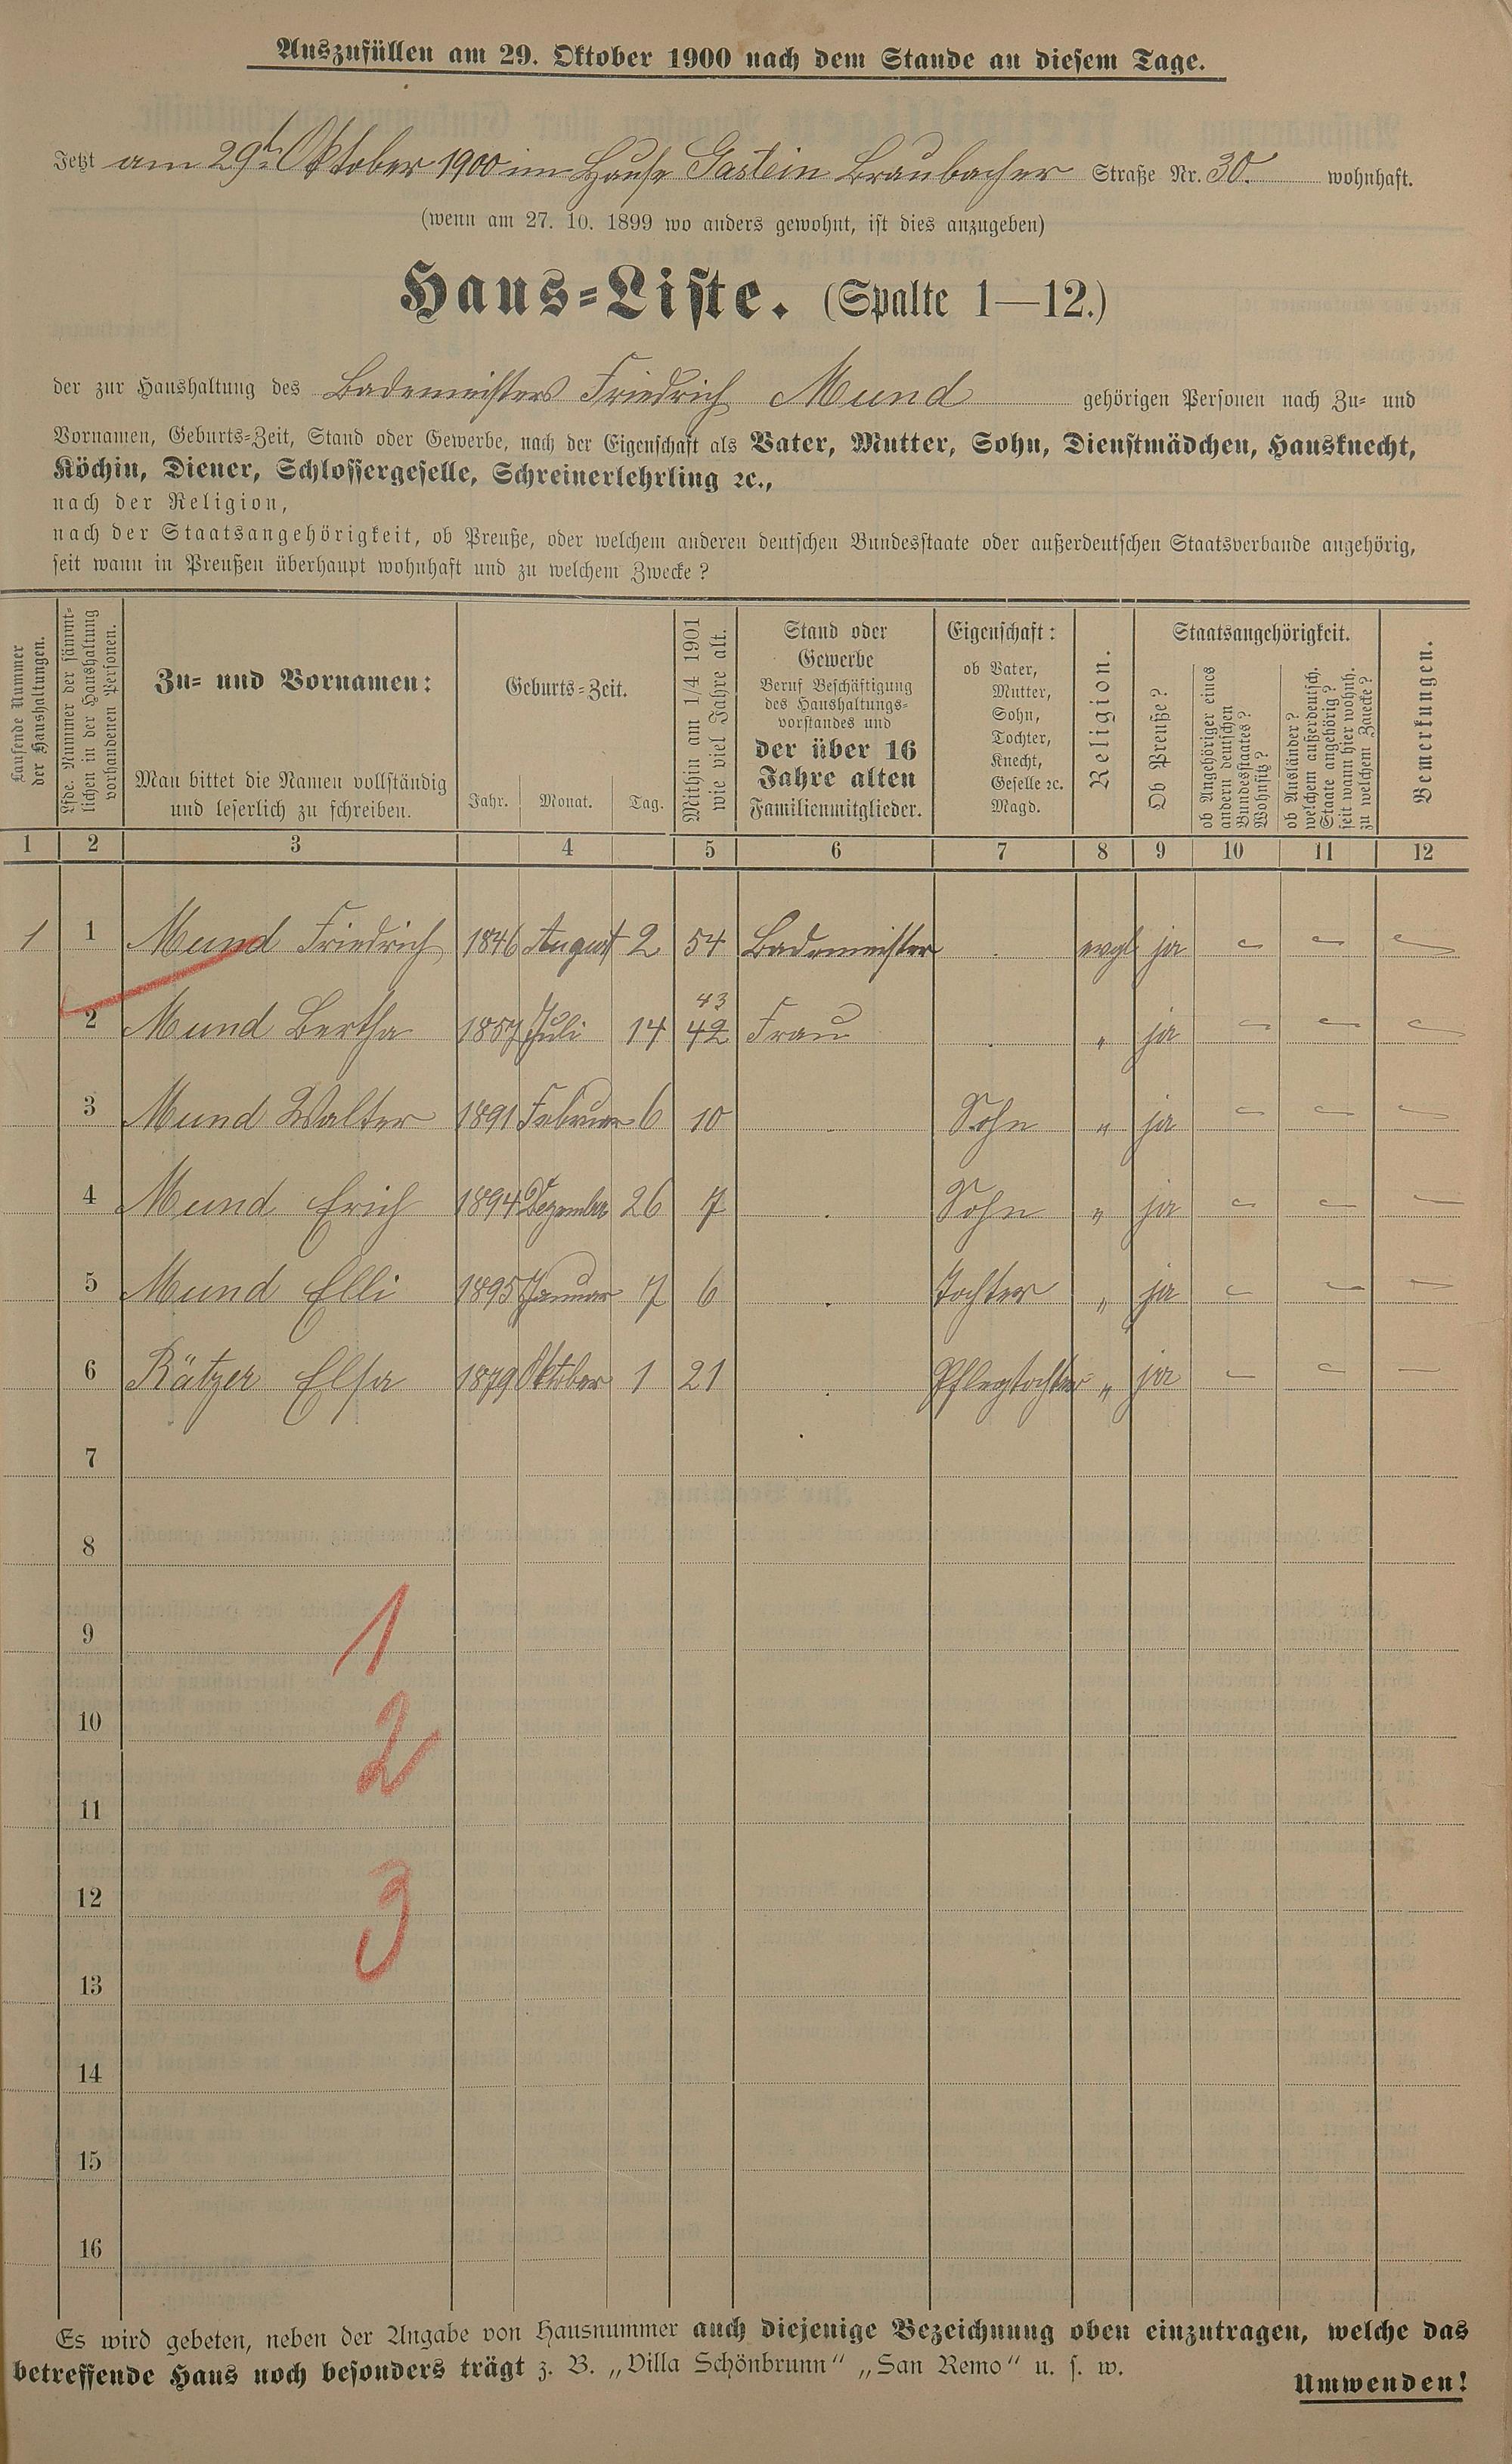 Auszufüllen am 29. Oktober 1900 nach dem Stande an diesem Tage.
Jetzt am 29t. Oktober 1900 im Hause Gastein Braubacher Straße Nr. 30. wohnhaft.
(wenn am 27. 10. 1899 wo anders gewohnt, ist dies anzugeben)
Haus-Liste. (Spalte 1—12.)
der zur Haushaltung des Bademeisters Friedrich Mund gehörigen Personen nach Zu- und
Vornamen, Geburts-Zeit, Stand oder Gewerbe, nach der Eigenschaft als Vater, Mutter, Sohn, Dienstmädchen, Hausknecht,
Köchin, Diener, Schlossergeselle, Schreinerlehrling ꝛc.,
nach der Religion,
nach der Staatsangehörigkeit, ob Preuße, oder welchem anderen deutschen Bundesstaate oder außerdeutschen Staatsverbande angehörig,
seit wann in Preußen überhaupt wohnhaft und zu welchem Zwecke?
Laufende Nummer
der Haushaltungen.
Lfde. Nummer der sämmt-
lichen in der Haushaltung
vorhandenen Personen.
Zu- und Vornamen:
Man bittet die Namen vollständig
und leserlich zu schreiben.
Geburts-Zeit.
Jahr. Monat. Tag.
Mithin am 1/4 1901
wie viel Jahre alt.
Stand oder
Gewerbe
Beruf Beschäftigung
des Haushaltungs-
vorstandes und
der über 16
Jahre alten
Familienmitglieder.
Eigenschaft:
ob Vater,
Mutter,
Sohn,
Tochter,
Knecht,
Geselle ꝛc.
Magd.
Religion.
Staatsangehörigkeit.
Ob Preuße?
ob Angehöriger eines
andern deutschen
Bundesstaates?
Wohnsitz?
ob Ausländer?
welchem außerdeutsch.
Staate angehörig?
seit wann hier wohnh.
zu welchem Zwecke?
Bemerkungen.
1 2 3 4 5 6 7 8 9 10 11 12
1 1 Mund Friedrich 1846 August 2 54 Bademeister evgl ja
43
2 Mund Bertha 1857 Juli 14 42 Frau " ja
3 Mund Walter 1891 Februar 6 10 Sohn " ja
4 Mund Erich 1894 Dezember 26 7 Sohn " ja
5 Mund Elli 1895 Januar 7 6 Tochter " ja
6 Rätzer Elsa 1879 Oktober 1 21 Pflegtochter " ja
7
8
9 1
10 2
11
12 3
13
14
15
16
Es wird gebeten, neben der Angabe von Hausnummer auch diejenige Bezeichnung oben einzutragen, welche das
betreffende Haus noch besonders trägt z. B. „Villa Schönbrunn“ „San Remo“ u. s. w.
Umwenden!